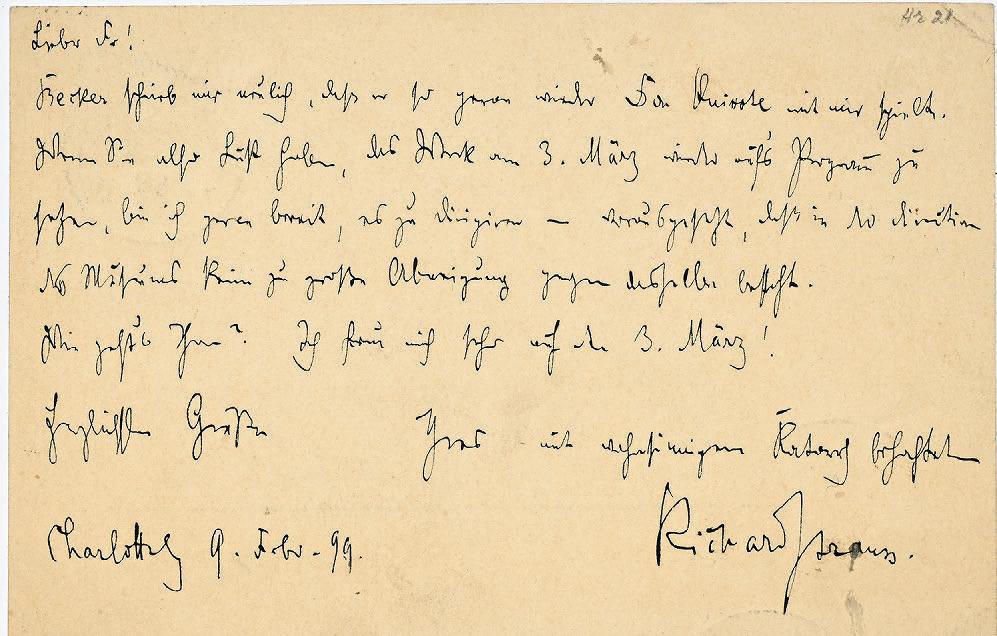 Lieber Fr!
Becker schrieb mir neulich, daß er so gerne wieder Don Quixote mit mir spielte.
Wenn Sie also Lust haben, das Werk am 3. März wieder aufs Programm zu
setzen, bin ich gerne bereit, es zu dirigiren – vorausgesetzt, daß in der direction
des Museums keine zu große Abneigung gegen dasselbe besteht.
Wie geht's Ihnen? Ich freue mich sehr auf den 3. März!
Herzlichste Grüße Ihres mit wahnsinnigem Katarrh behafteten
Charlottbg 9. Febr. 99. Richard Strauss.